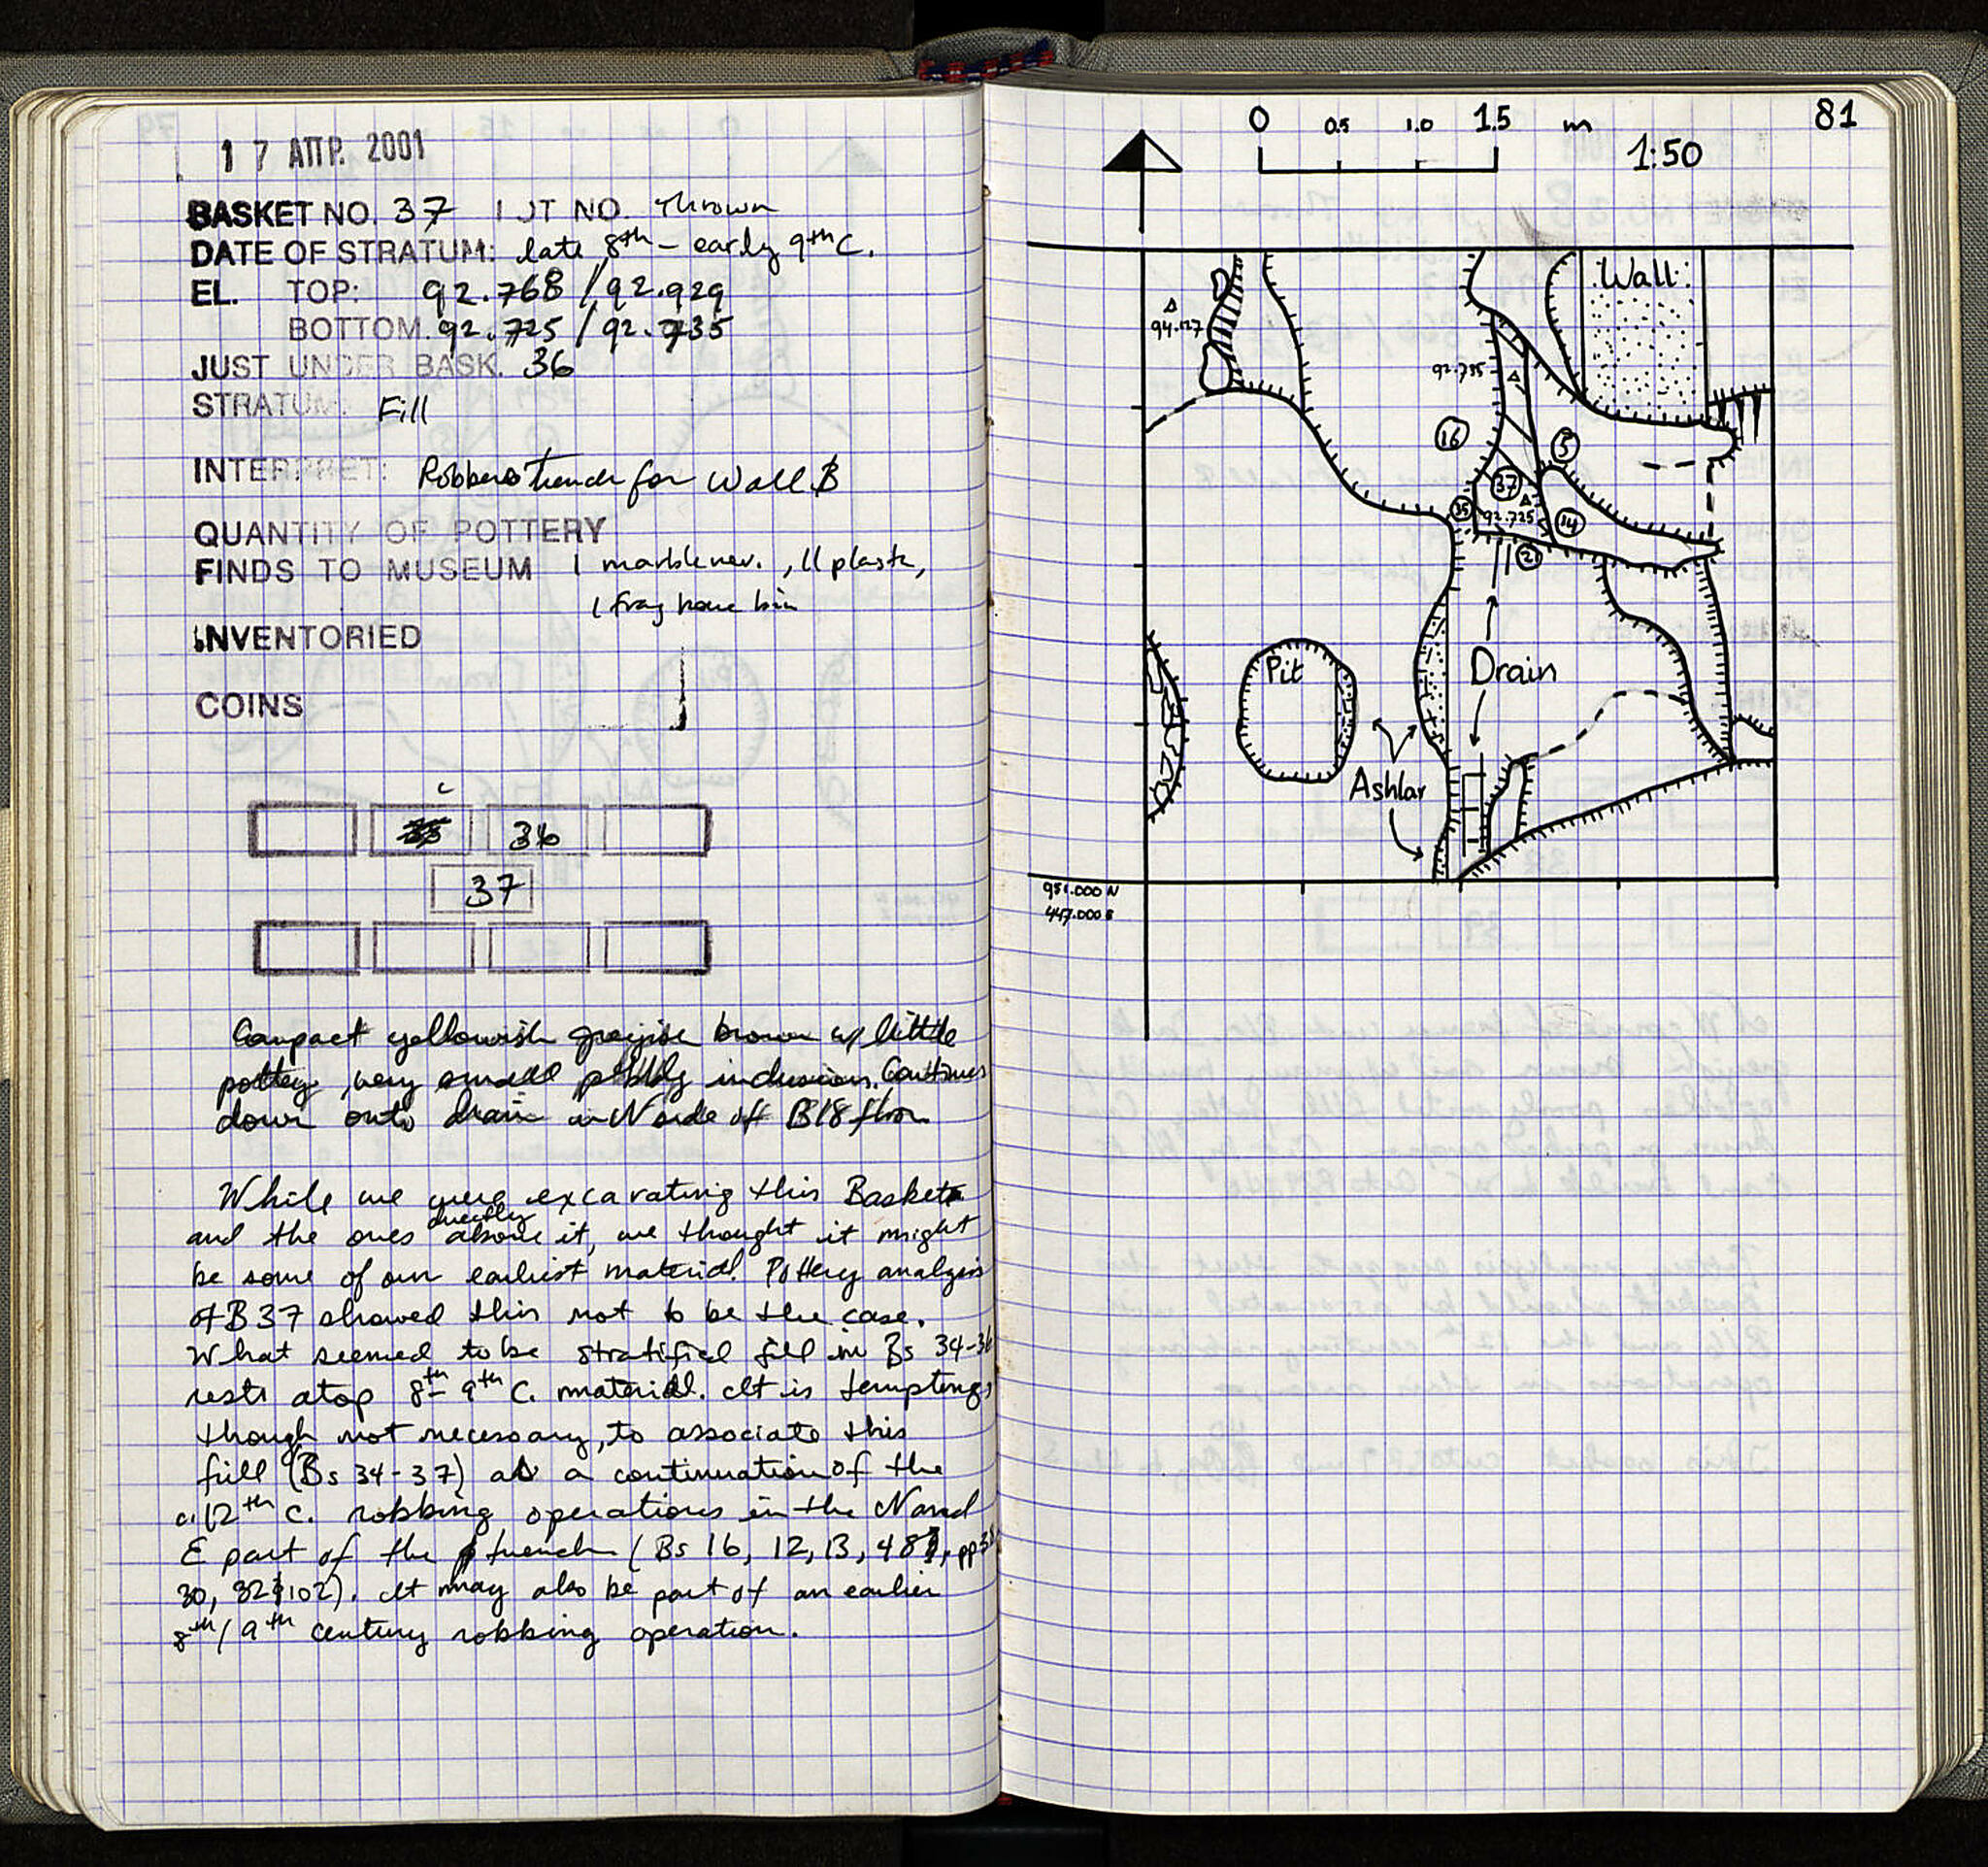 17 ΑΠΡ. 2001
BASKET NO. 37 LOT NO. Thrown
DATE OF STRATUM: late 8th - early 9th C.
EL. TOP: 92.768 / 92.929
BOTTOM. 92.725 / 92.735
JUST UNDER BASK. 36
STRATUM: Fill
INTERPRET: Robbers trench for Wall B
QUANTITY OF POTTERY
FINDS TO MUSEUM 1 marble rev., 11 plaster,
1 frag bone
INVENTORIED
COINS
36
37
Compact yellowish greyish brown w/ little
pottery, very small pebbly inclusions. Continues
down onto drain in N side of B18 floor.
While we were excavating this Basket
and the ones directly above it, we thought it might
be some of our earliest material. Pottery analysis
of B37 showed this not to be the case.
What seemed to be stratified fill in Bs 34-36
rests atop 8th- 9th C. material. It is tempting,
though not necessary, to associate this
fill (Bs 34-37) as a continuation of the
c. 12th c. robbing operations in the N and
E part of the trench (Bs 16, 12, 13, 48, pp
30, 32, 102). It may also be part of an earlier
8th/9th century robbing operation.
81
0 0.5 1.0 1.5 m
1:50
Wall
94.127
92.735
16
5
37
35
92.725
14
2
Pit
Drain
Ashlar
951.000 N
447.000 E